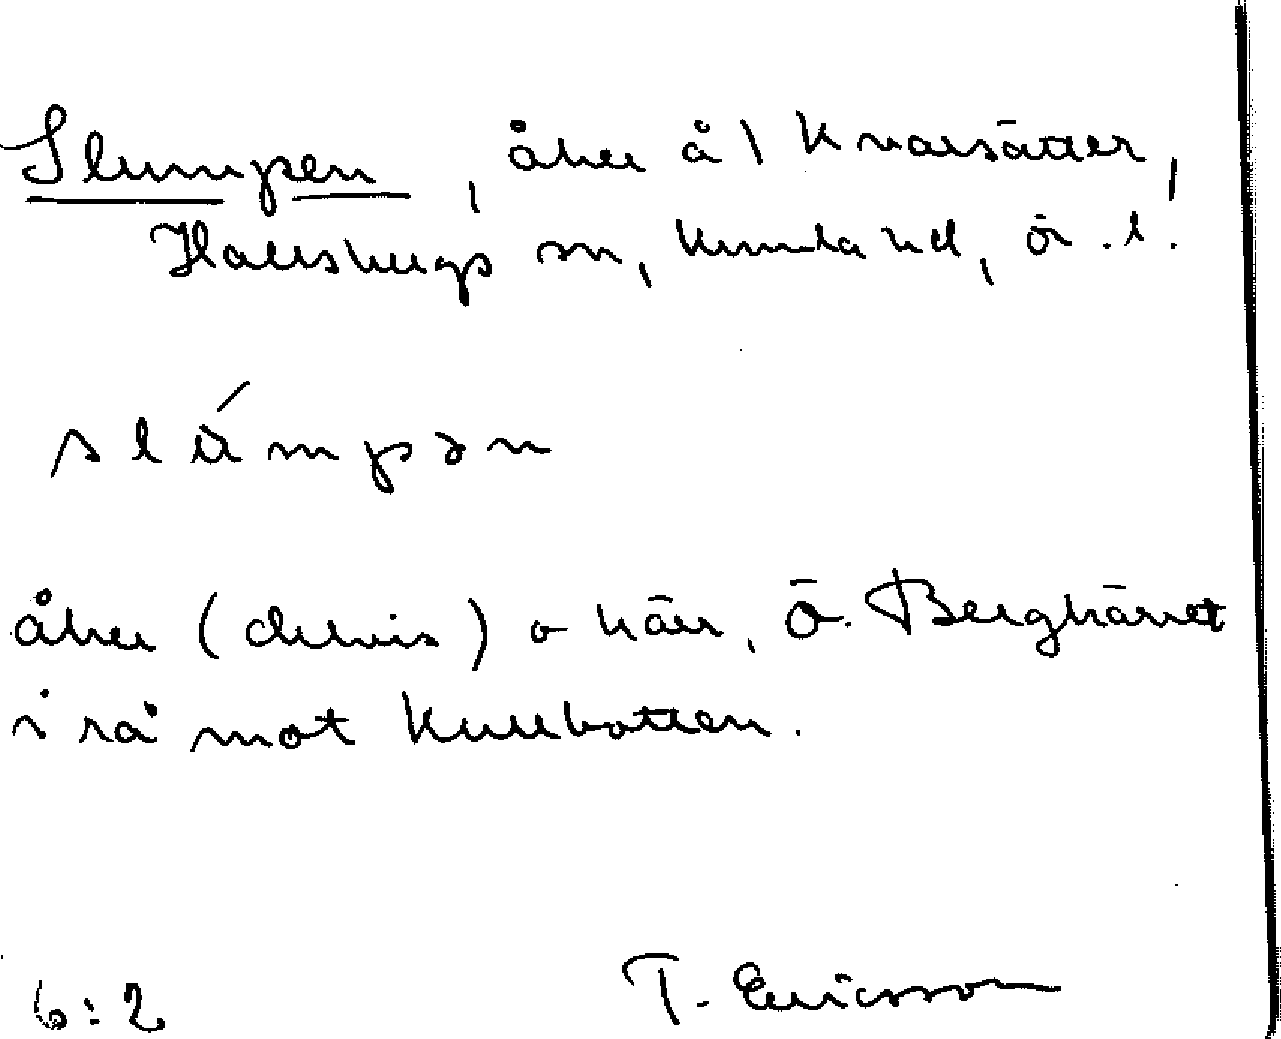 Slumpen, åker å 1 Kvarsätter,
Hällestads sn, Kumla hd, ör. l.
slúmpən
åker (delvis) o kärr, Ö. Bergkärret
i rå mot Kullbotten.
6:2 T. Ericsson